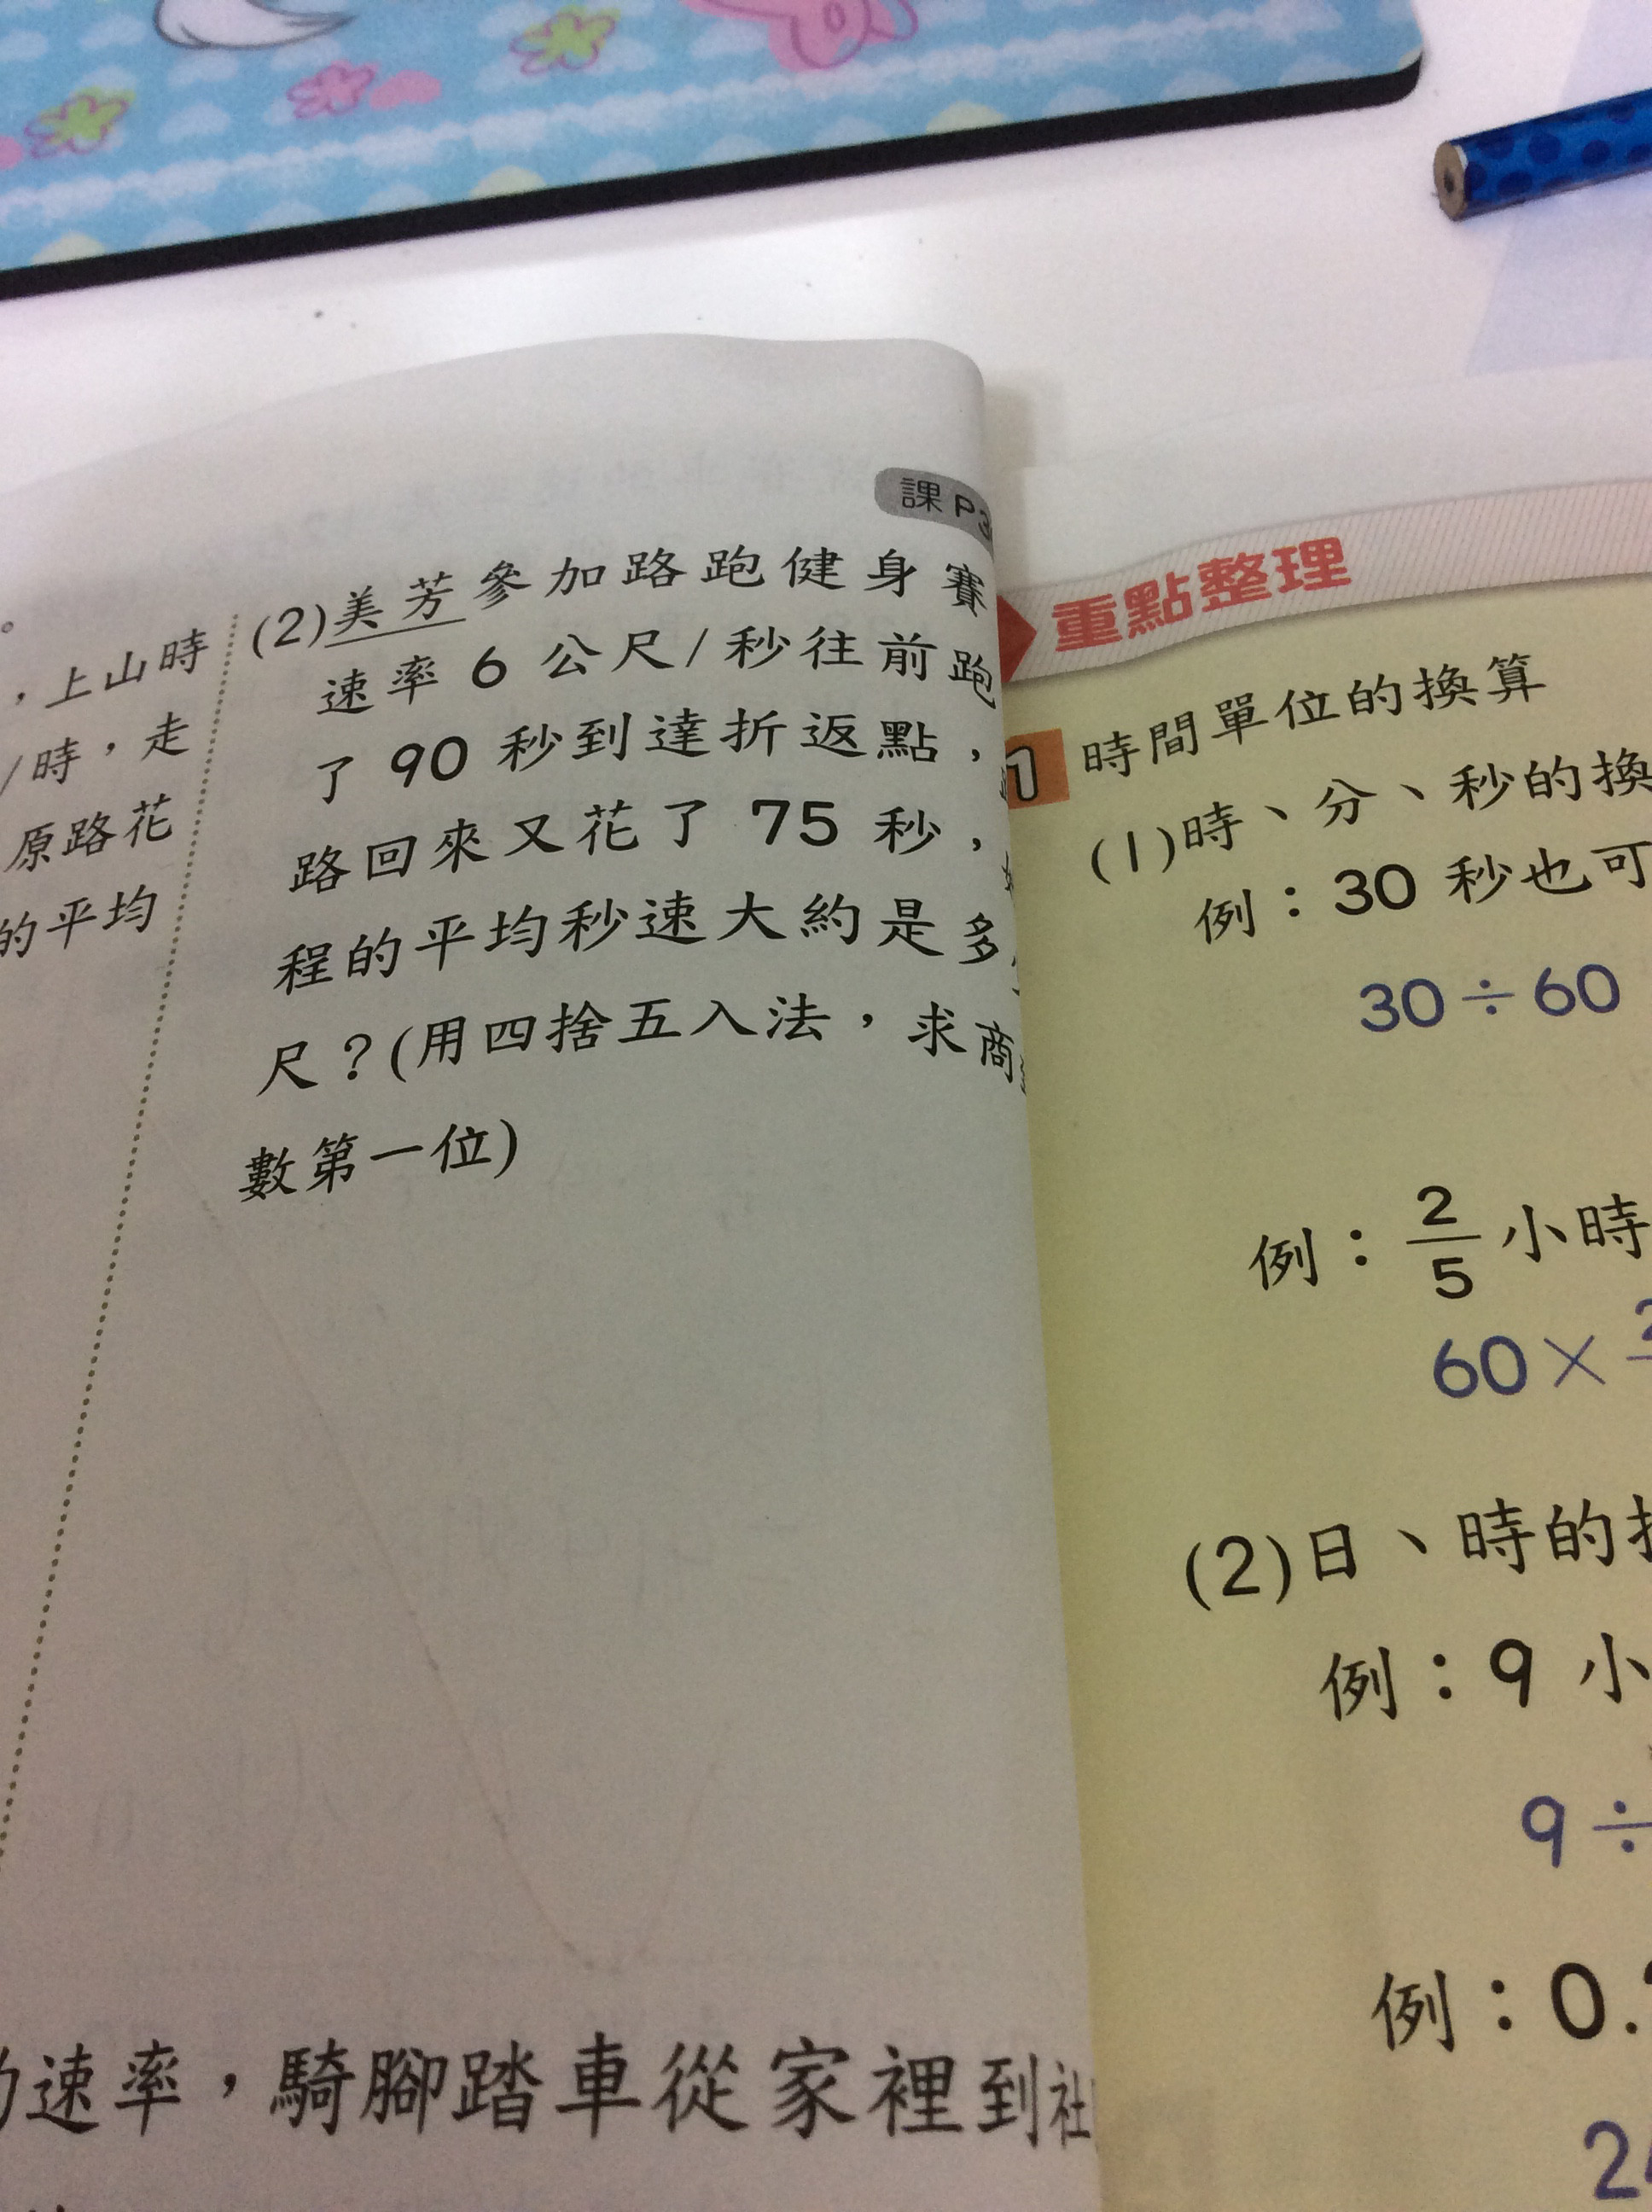 課 P3
。
，上山時
/時，走
原路花
的平均
(2)美芳參加路跑健身賽
速率 6 公尺/秒往前跑
了 90 秒到達折返點，
路回來又花了 75 秒，
程的平均秒速大約是多
尺？(用四捨五入法，求商
數第一位)
的速率，騎腳踏車從家裡到社
重點整理
1 時間單位的換算
(1)時、分、秒的換
例：30 秒也可
30÷60
例：2/5 小時
60×
(2)日、時的
例：9 小
9÷
例：0.
2